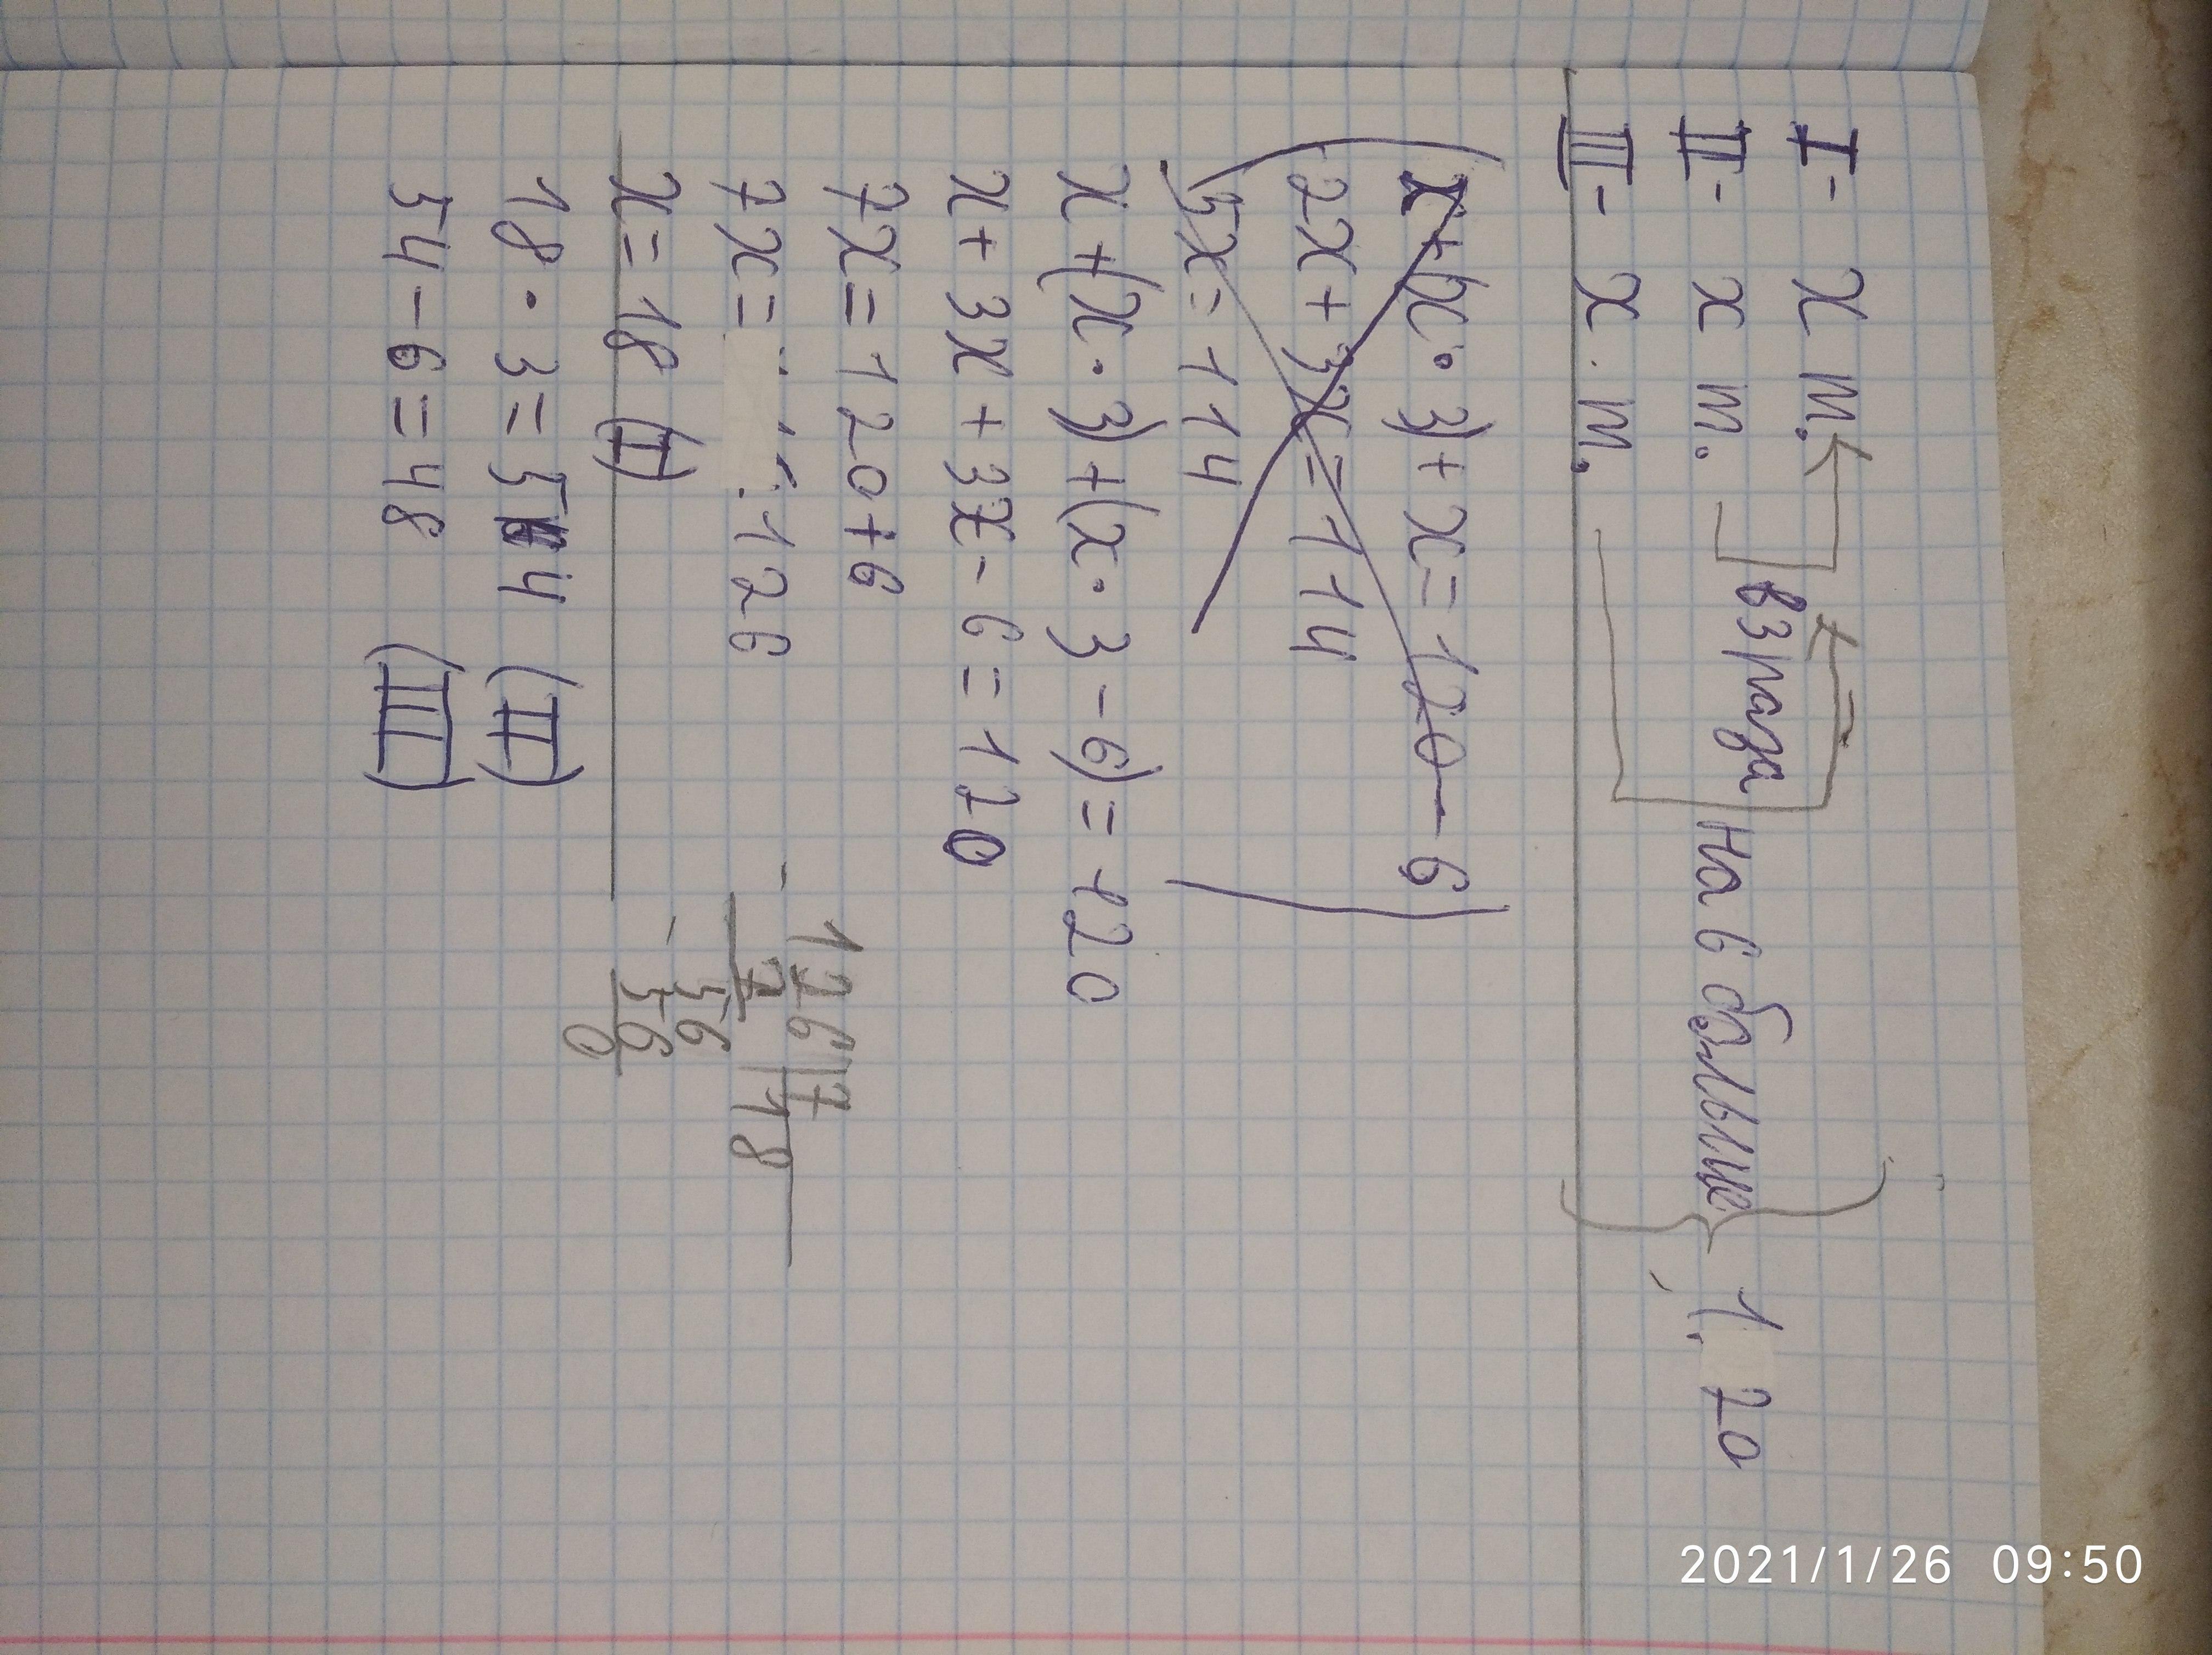 I - x м.
II - x м. в 3 раза
III - x м. на 6 больше 120
x + (x · 3) + x = 120 - 6
2x + 3x = 114
5x = 114
x + (x · 3) + (x · 3 - 6) = 120
x + 3x + 3x - 6 = 120
7x = 120 + 6
7x = 126
x = 18 (I)
18 · 3 = 54 (II)
54 - 6 = 48 (III)
126 | 7
7 | 18
56
56
0
2021/1/26 09:50